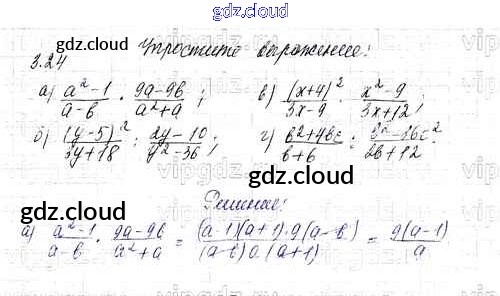 gdz.cloud
3.24 Упростите выражение:
а) (a²-1)/(a-b) · (9a-9b)/(a²+a); в) (x+4)²/(3x-9) · (x²-9)/(3x+12);
б) (y-5)²/(3y+18) : (2y-10)/(y²-36); г) (b²+4bc)/(b+6) : (b²-16c²)/(2b+12).
Решение:
а) (a²-1)/(a-b) · (9a-9b)/(a²+a) = ((a-1)(a+1)·9(a-b))/((a-b)a(a+1)) = 9(a-1)/a